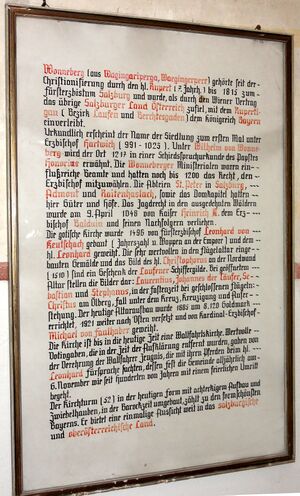 Wonneberg (aus Wagingariperga, Waegingerperc) gehörte seit der
Christianisierung durch den hl. Rupert (7. Jahrh.) bis 1815 zum
fürsterzbistum Salzburg und wurde, als durch den Wiener Vertrag
das übrige Salzburger Land Österreich zufiel, mit dem Ruperti-
gau (Bezirk Laufen und Berchtesgaden) dem königreich Bayern
einverleibt.
Urkundlich erscheint der Name der Siedlung zum ersten Mal unter
Erzbischof Hartwich (991-1023). Unter Wilhelm von Wonne-
berg wird der Ort in einer Schiedspruchurkunde des Papstes
Honorius erwähnt. Die Wonneberger Ministerialen waren ein-
flußreiche Beamte und hatten noch bis 1200 das Recht, den
Erzbischof mitzuwählen. Die Abteien St. Peter in Salzburg,
Admont und Raitenhaslach, sowie das Domkapitel hatten
hier Güter und Höfe. Das Jagdrecht in den ausgedehnten Wäldern
wurde am 9. April 1048 von Kaiser Heinrich dem Erz-
bischof Balduin und seinen Nachfolgern verliehen.
Die gotische Kirche wurde 1496 von fürsterzbischof Leonhard von
Keutschach gebaut (Jahreszahl u. Wappen an der Empore) und dem
hl. Leonhard geweiht. Die sehr wertvollen in den flügelaltar einge-
bauten Gemälde und das Bild des hl. Christophorus an der Nordwand
(1510) sind ein Geschenk der Laufener Schiffergilde. Bei geöffnetem
Altar stellen die Bilder dar: Laurentius, Johannes der Täufer, Se-
bastian und Stephanus, in der fastenzeit bei geschlossenen flügeln:
Christus am Ölberg, fall unter dem Kreuz, Kreuzigung und Aufer-
stehung. Der heutige Altaraufbau wurde 1685 um 8.120 Goldmark
errichtet, 1921 weiter nach Osten versetzt und von Kardinal-Erzbischof
Michael von faulhaber geweiht.
Die Kirche ist bis in die heutige Zeit eine Wallfahrtskirche. Wertvolle
Votivgaben, die in der Zeit der Aufklärung entfernt wurden, gaben von
der Verehrung der Wallfahrer Zeugnis, die mit ihren Pferden beim hl.
Leonhard fürsprache suchten, dessen fest die Gemeinde alljährlich am
6. November wie seit hunderten von Jahren mit einem feierlichen Umritt
begeht.
Der Kirchturm (52) in der heutigen Form mit achteckigem Aufbau und
zwiebelhauben, in der Barockzeit umgebaut, zählt zu den formschönsten
Bayerns. Er bietet eine einmalige Aussicht weit in das salzburgische
und oberösterreichische Land.